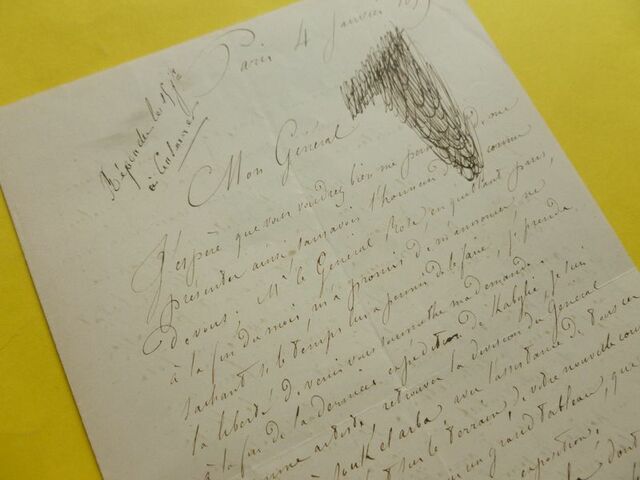 Paris 4 Janvier
Répondu le 15 Jr
à Toulouse
Mon Général
J'espère que vous voudrez bien me permettre, me
présenter ainsi sans avoir l'honneur d'être connu
de vous. Mr le Général Rose, en quittant Paris,
à la fin du mois, m'a promis de m'annoncer, ne
sachant si le temps lui a permis de le faire, je prends
la liberté de venir vous soumettre ma demande.
à la fin de la dernière expédition de Kabylie, je suis
comme artiste retrouver la division du Général
à Souk el arba avec l'assistance de tous ce
sur le terrain, de votre nouvelle con
un grand tableau, que
exposition;
dont